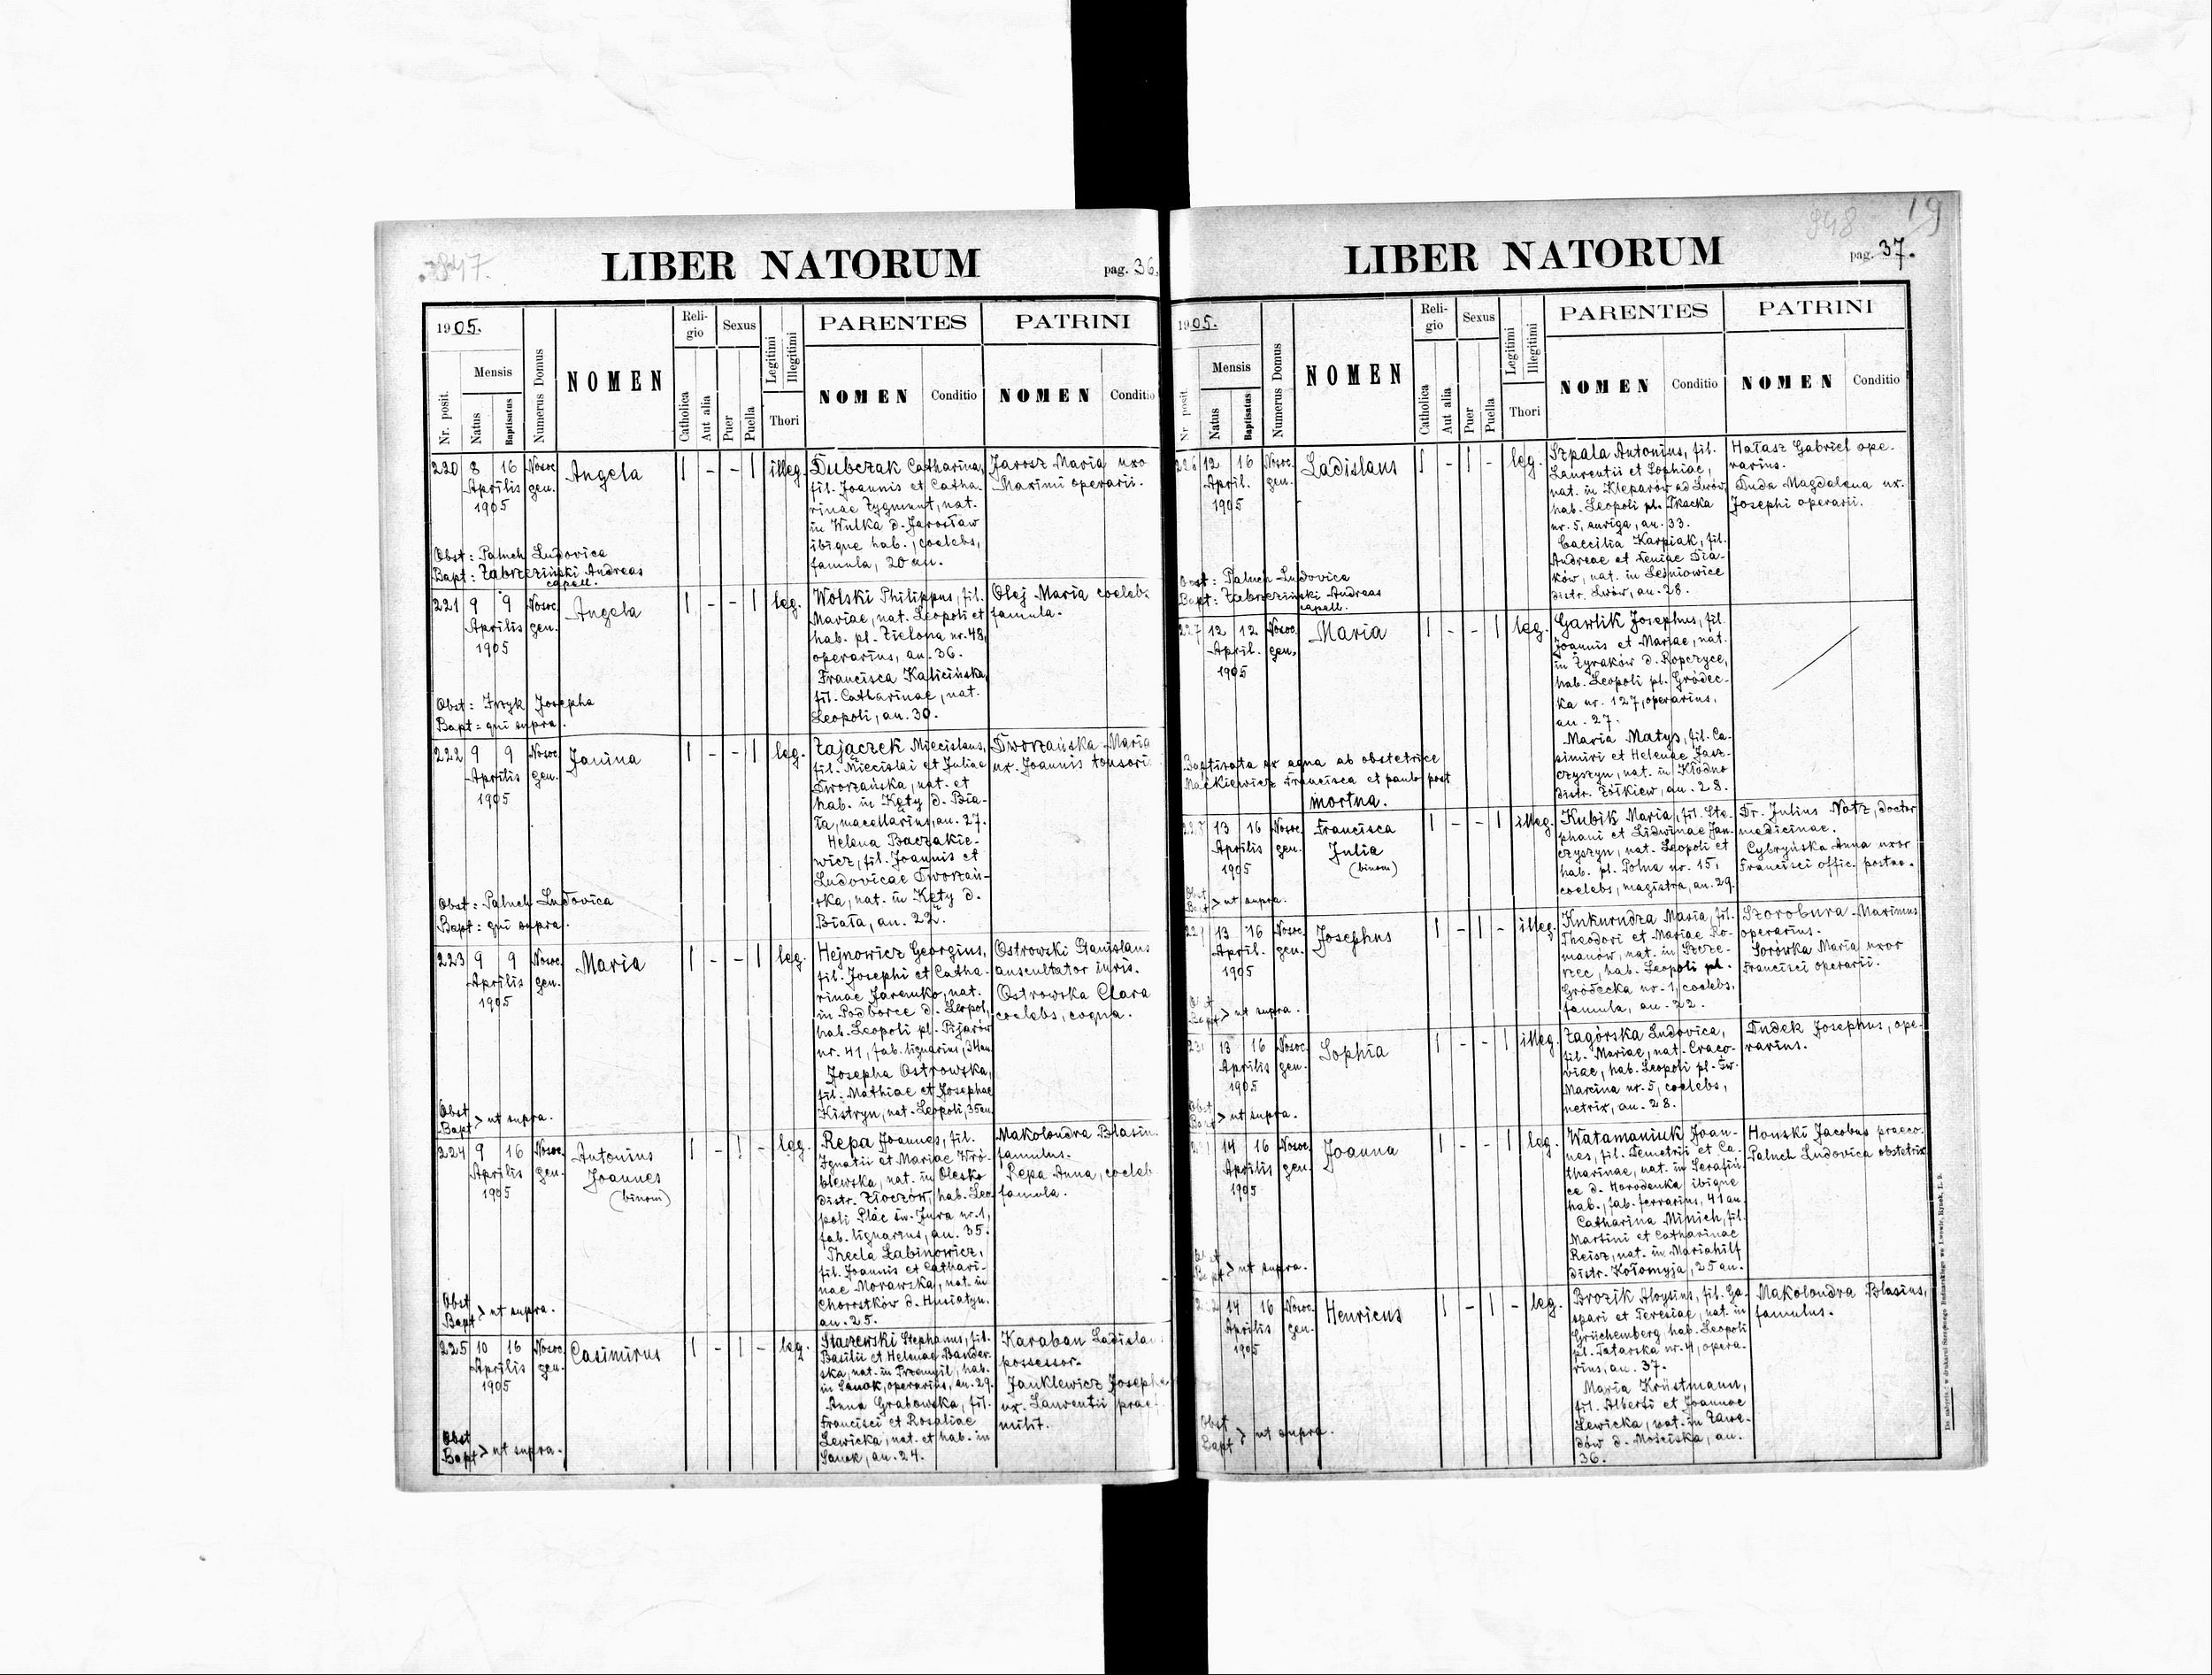 LIBER NATORUM
pag. 36.
1905.
Nr. posit.
Mensis
Natus
Baptisatus
Numerus Domus
NOMEN
Religio
Catholica
Aut alia
Sexus
Puer
Puella
Legitimi
Illegitimi
Thori
PARENTES
NOMEN
Conditio
PATRINI
NOMEN
Conditio
220 8 16 Nosoc. gen.
Aprilis
1905
Angela
| - - | illeg.
Dubczak Catharina,
fil. Joannis et Catha-
rinae Zygmunt, nat.
in Wulka d. Jarosław
ibique hab., coelebs,
famula, 20 an.
Jarosz Maria uxo
Maximi operarii.
Obst: Paluch Ludovica
Bapt: Zabrzeziński Andreas
capell.
221 9 9 Nosoc. gen.
Aprilis
1905
Angela
| - - | leg.
Wolski Philippus, fil.
Mariae, nat. Leopoli et
hab. pl. Zielona nr. 48,
operarius, an. 36.
Francisca Kalicińska,
fil. Catharinae, nat.
Leopoli, an. 30.
Olej Maria coelebs
famula.
Obst: Fryk Josepha
Bapt: qui supra.
222 9 9 Nosoc. gen.
Aprilis
1905
Janina
| - - | leg.
Zajączek Miecislaus,
fil. Miecislai et Juliae
Dworzańska, nat. et
hab. in Kęty d. Bia-
ła, macellarius, an. 27.
Helena Baczakie-
wicz, fil. Joannis et
Ludovicae Dworzań-
ska, nat. in Kęty d.
Biała, an. 22.
Dworzańska Maria
ux. Joannis tonsori
Obst: Paluch Ludovica
Bapt: qui supra.
223 9 9 Nosoc. gen.
Aprilis
1905
Maria
| - - | leg.
Hejnowicz Georgius,
fil. Josephi et Catha-
rinae Jaremko, nat.
in Podborce d. Leopol,
hab. Leopoli pl. Pijarów
nr. 41, fab. lignarius, 34 an.
Josepha Ostrowska,
fil. Mathiae et Josephae
Kistryn, nat. Leopoli, 35 an.
Ostrowski Stanislaus
auscultator iuris.
Ostrowska Clara
coelebs, cogna.
Obst
Bapt > ut supra.
224 9 16 Nosoc. gen.
Aprilis
1905
Antonius
Joannes
(binom)
| - | - leg.
Repa Joannes, fil.
Ignatii et Mariae Wró-
blewska, nat. in Olesko
distr. Złoczów, hab. Leo-
poli Plac św. Jura nr. 1,
fab. lignarius, an. 35.
Thecla Łabinowicz,
fil. Joannis et Cathari-
nae Morawska, nat. in
Chorostków d. Husiatyn.
an. 25.
Makolondra Blasiu
famulus.
Repa Anna, coeleb
famula.
Obst
Bapt > ut supra.
225 10 16 Nosoc. gen.
Aprilis
1905
Casimirus
| - | - leg.
Staszewski Stephanus, fil.
Basilii et Helenae Bander-
ska, nat. in Przemyśl, hab.
in Sanok, operarius, an. 29.
Anna Grabowska, fil.
Francisci et Rosaliae
Lewicka, nat. et hab. in
Sanok, an. 24.
Karaban Ladislau
possessor.
Janklewicz Josepha
ux. Laurentii praef.
milit.
Obst
Bapt > ut supra.
948
19
LIBER NATORUM
pag. 37.
1905.
Nr. posit.
Mensis
Natus
Baptisatus
Numerus Domus
NOMEN
Religio
Catholica
Aut alia
Sexus
Puer
Puella
Legitimi
Illegitimi
Thori
PARENTES
NOMEN
Conditio
PATRINI
NOMEN
Conditio
226 12 16 Nosoc. gen.
April.
1905
Ladislaus
| - | - leg.
Szpala Antonius, fil.
Laurentii et Sophiae,
nat. in Kleparów ad Lwów,
hab. Leopoli pl. Tkacka
nr. 5, auriga, an. 33.
Caecilia Karpiak, fil.
Andreae et Xeniae Dia-
ków, nat. in Leśniowice
distr. Lwów, an. 28.
Hałasz Gabriel ope-
rarius.
Duda Magdalena ux.
Josephi operarii.
Obst: Paluch Ludovica
Bapt: Zabrzeziński Andreas
capell.
227 12 12 Nosoc. gen.
April.
1905
Maria
| - - | leg.
Gawlik Josephus, fil.
Joannis et Mariae, nat.
in Żyraków d. Ropczyce,
hab. Leopoli pl. Gródec-
ka nr. 127, operarius,
an. 27.
Maria Matys, fil. Ca-
simiri et Helenae Jasz-
czyszyn, nat. in Kłodno
distr. Żółkiew, an. 28.
Baptisata ex aqua ab obstetrice
Mackiewicz Francisca et paulo post
mortua.
228 13 16 Nosoc. gen.
Aprilis
1905
Francisca
Julia
(binom)
| - - | illeg.
Kubik Maria, fil. Ste-
phani et Lidwinae Jan-
czyszyn, nat. Leopoli et
hab. pl. Polna nr. 15,
coelebs, magistra, an. 29.
Dr. Julius Notz, doctor
medicinae.
Cybryńska Anna uxor
Francisci offic. postae.
Obst
Bapt > ut supra.
229 13 16 Nosoc. gen.
April.
1905
Josephus
| - | - illeg.
Kukurudza Maria, fil.
Theodori et Mariae Ro-
manów, nat. in Szcze-
rzec, hab. Leopoli pl.
Gródecka nr. 1, coelebs,
famula, an. 22.
Szorobura Maximus
operarius.
Sorówka Maria uxor
Francisci operarii.
Obst
Bapt > ut supra.
230 13 16 Nosoc. gen.
Aprilis
1905
Sophia
| - - | illeg.
Zagórska Ludovica,
fil. Mariae, nat. Craco-
viae, hab. Leopoli pl. Św.
Marcina nr. 5, coelebs,
netrix, an. 28.
Dudek Josephus, ope-
rarius.
Obst
Bapt > ut supra.
231 14 16 Nosoc. gen.
Aprilis
1905
Joanna
| - - | leg.
Watamaniuk Joan-
nes, fil. Demetrii et Ca-
tharinae, nat. in Serafiń-
ce d. Horodenka ibique
hab., fab. ferrarius, 41 an.
Catharina Minich, fil.
Martini et Catharinae
Reisz, nat. in Mariahilf
distr. Kołomyja, 25 an.
Honski Jacobus praeco.
Paluch Ludovica obstetrix
Obst
Bapt > ut supra.
232 14 16 Nosoc. gen.
Aprilis
1905
Henricus
| - | - leg.
Brozik Aloysius, fil. Ga-
spari et Teresiae, nat. in
Grüchemberg hab. Leopoli
pl. Tatarska nr. 4, opera-
rius, an. 37.
Maria Krüstmann,
fil. Alberti et Joannae
Lewicka, nat. in Zawa-
dów d. Mościska, an.
36.
Makolondra Blasius,
famulus.
Obst
Bapt > ut supra.